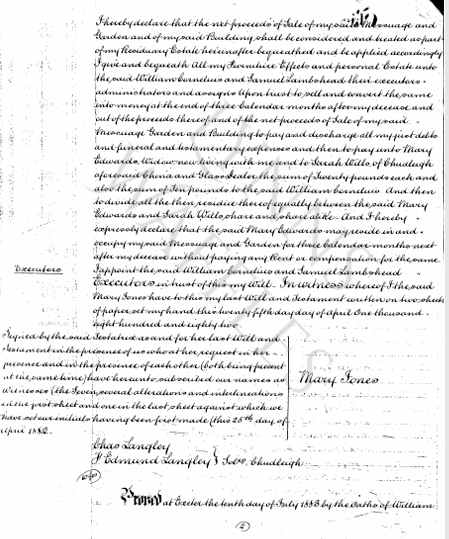 I hereby declare that the net proceeds of Sale of my said Messuage and
Garden and of my said Building shall be considered and treated as part
of my Residuary Estate hereinafter bequeathed and be applied accordingly
I give and bequeath All my Furniture Effects and personal Estate unto
the said William Cornelius and Samuel Lambshead their executors
administrators and assigns Upon trust to sell and convert the same
into money at the end of three Calendar months after my decease and
out of the proceeds thereof and of the net proceeds of Sale of my said
Messuage Garden and Building to pay and discharge all my just debts
and funeral and testamentary expenses and then to pay unto Mary
Edwards, Widow now living with me and to Sarah Wills, of Chudleigh
aforesaid China and Glass Dealer the sum of Twenty pounds each and
also the sum of Ten pounds to the said William Cornelius And then
to divide all the then residue thereof equally between the said Mary
Edwards and Sarah Wills, share and share alike And I hereby
expressly declare that the said Mary Edwards may reside in and
occupy my said Messuage and Garden for three Calendar months next
after my decease without paying any Rent or compensation for the same
Executors
I appoint the said William Cornelius and Samuel Lambshead
Executors in trust of this my Will In witness whereof I the said
Mary Jones have to this my last Will and Testament written on two sheets
of paper set my hand this twenty fifth day day of April One thousand
eight hundred and eighty two
Signed by the said Testatrix as and for her last Will and
Testament in the presence of us who at her request in her
presence and in the presence of each other (both being present
at the same time) have hereunto subscribed our names as
Witnesses (the Seven several alterations and interlineations
in the first sheet and one in the last sheet against which we
have set our initials having been first made) this 25th day of
April 1882
Mary Jones
Chas Langley
F Edmund Langley } Solrs, Chudleigh
Proved at Exeter the tenth day of July 1883 by the Oaths of William
2